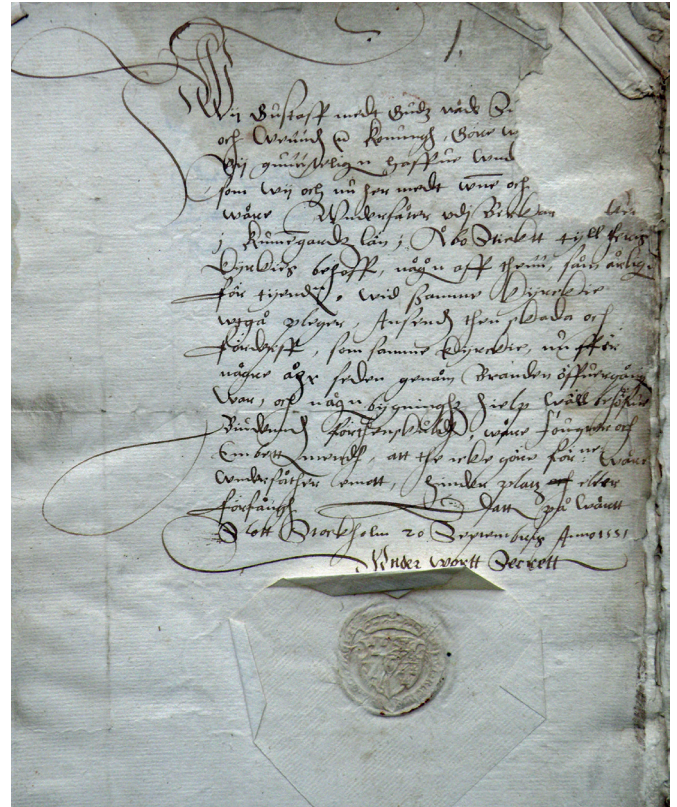 Wij Gustaff medt Gudz nåde Sv
och Wendes konungh, Göre w
Wij gunsteligen haffue wnd
som wij och nu her medt wnne och
wåre Wndersåter vdj Birkar
j Kumegardz län j Åbo Stickt till theres
Kyrkies behoff, någen aff then, som årlige
för tijenden, wid samme Kyrckie
wtgå pleger, Ansendes then skada och
förderff, som samme Kyrckie, nu för
någre åhr seden genom Branden öffuergången
war, och någen bygningz hielp wäll behöffuer
Biudendes förthenskuld, wåre fougter och
Embetz mendh, att the icke göre för:ne wåre
wndersåther emott, hinder platz eller
förfångh Datt på wårtt
Slott Stockholm 20 Septembris Anno 1551
Wnder wortt Secrett